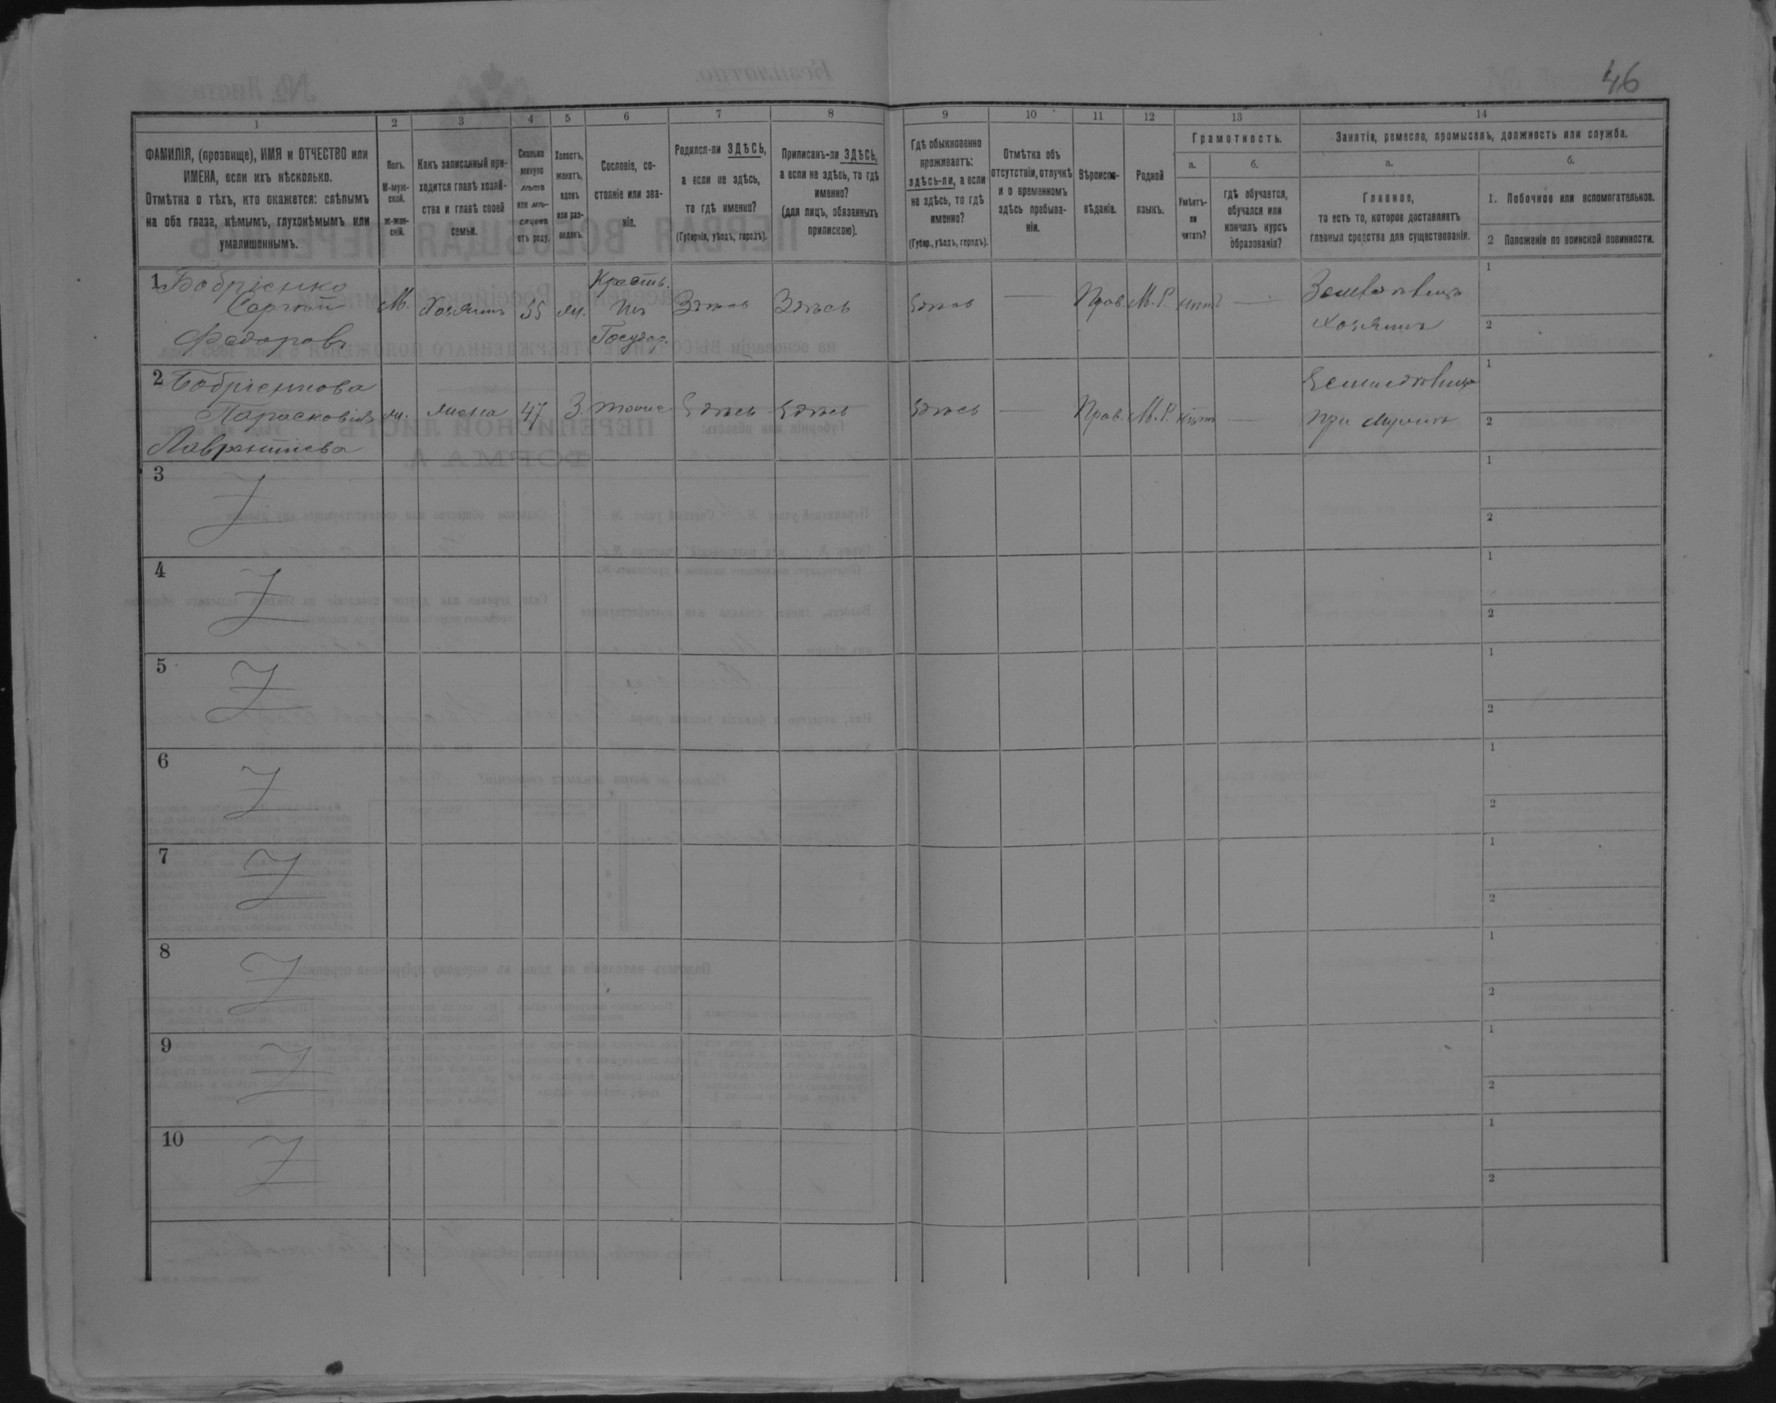 46
1
2
3
4
5
6
7
8
9
10
11
12
13
14
ФАМИЛІЯ, (прозвище), ИМЯ и ОТЧЕСТВО или
ИМЕНА, если ихъ нѣсколько.
Отмѣтка о тѣхъ, кто окажется: слѣпымъ
на оба глаза, нѣмымъ, глухонѣмымъ или
умалишеннымъ.
Полъ.
М-муж-
ской.
Ж-жен-
скій.
Какъ записанный при-
ходится главѣ хозяй-
ства и главѣ своей
семьи.
Сколько
минуло
лѣтъ
или мѣ-
сяцевъ
отъ роду.
Холостъ,
женатъ,
вдовъ
или раз-
веденъ.
Сословіе, со-
стояніе или зва-
ніе.
Родился-ли ЗДѢСЬ,
а если не здѣсь,
то гдѣ именно?
(Губернія, уѣздъ, городъ).
Приписанъ-ли ЗДѢСЬ,
а если не здѣсь, то гдѣ
именно?
(для лицъ, обязанныхъ
припискою).
Гдѣ обыкновенно
проживаетъ:
здѣсь-ли, а если
не здѣсь, то гдѣ
именно?
(Губер., уѣздъ, городъ).
Отмѣтка объ
отсутствіи, отлучкѣ
и о временномъ
здѣсь пребыва-
ніи.
Вѣроиспо-
вѣданіе.
Родной
языкъ.
Грамотность.
а.
б.
Умѣетъ-
ли
читать?
гдѣ обучается,
обучался или
кончилъ курсъ
образованія?
Занятія, ремесло, промыселъ, должность или служба.
а.
б.
Главное,
то есть то, которое доставляетъ
главныя средства для существованія.
1. Побочное или вспомогательное.
2 Положеніе по воинской повинности.
1 Бобрієнко
Сергѣй
Федоровъ
М. Хозяинъ 55 ж.
Кресть.
Изъ
Государ.
Здѣсь Здѣсь Здѣсь — Прав. М.Р. нѣтъ —
Земледѣлецъ
хозяинъ
1
2
2 Бобрієнкова
Парасковія
Лаврентіева
ж. жена 47 З. тоже Здѣсь Здѣсь Здѣсь — Прав. М.Р. нѣтъ —
Земледѣлецъ
при мужѣ
1
2
3
1
2
4
1
2
5
1
2
6
1
2
7
1
2
8
1
2
9
1
2
10
1
2